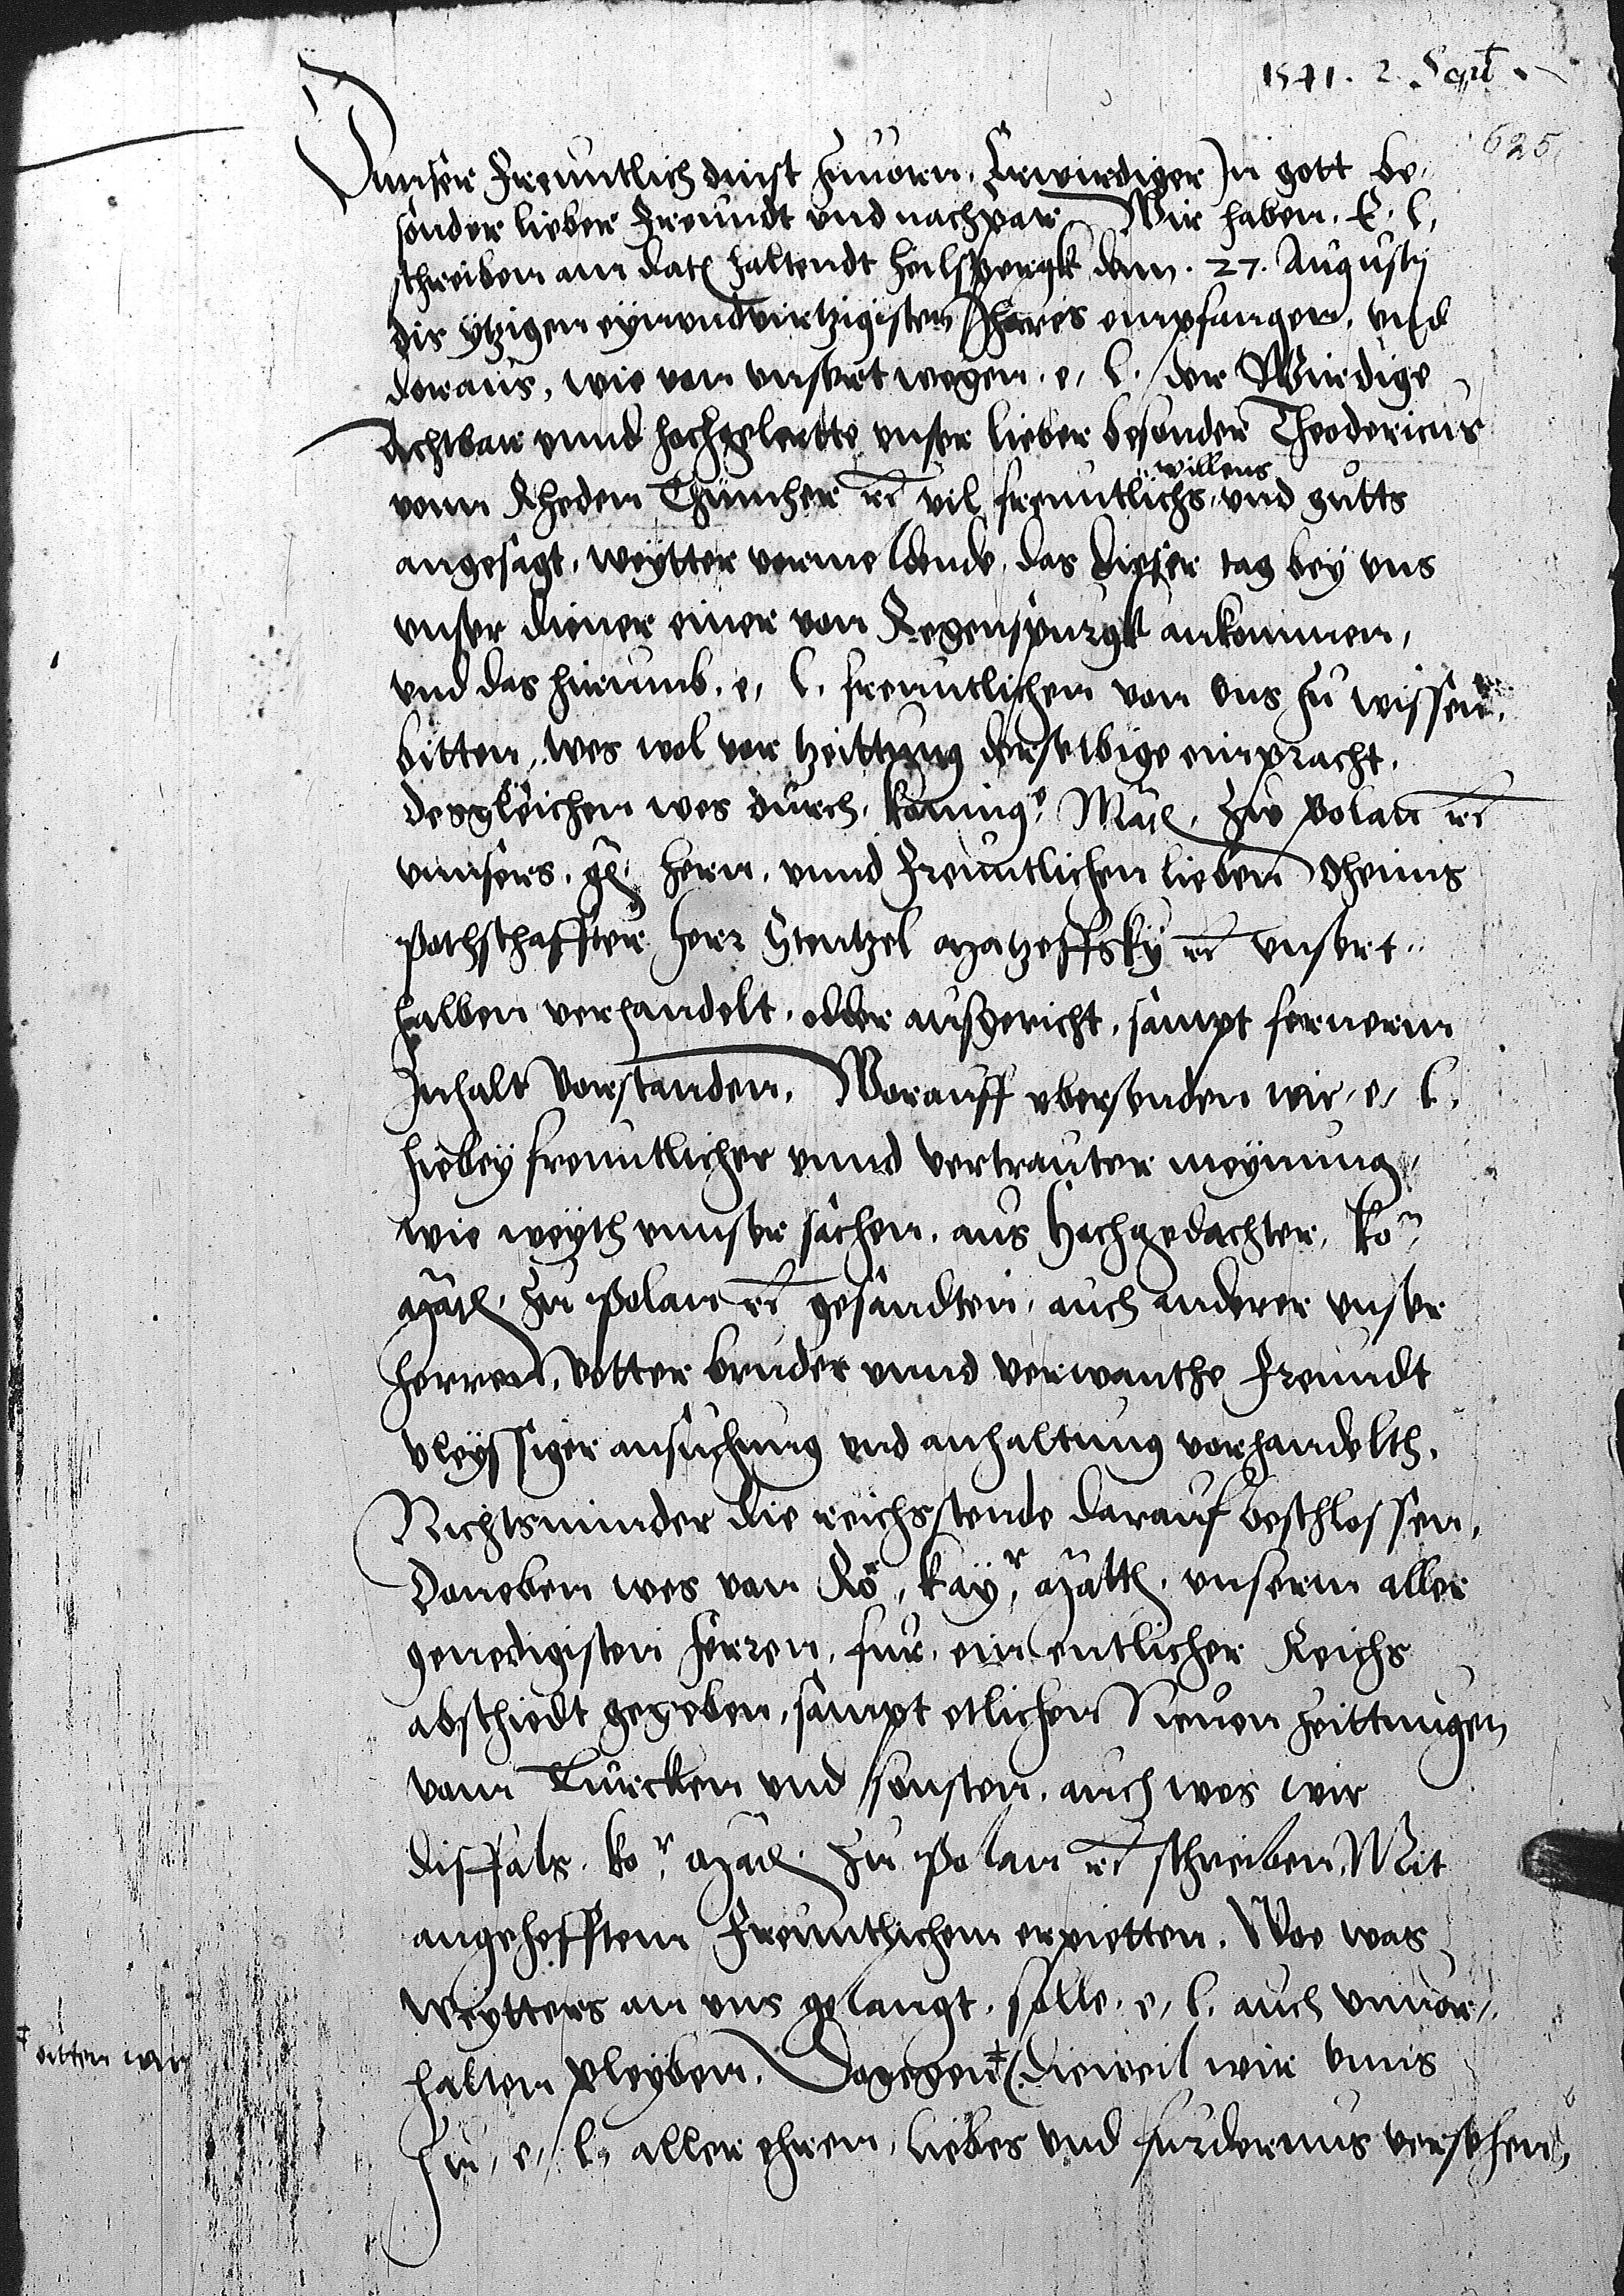 1541. 2. Sept.
625
Vnnser freuntlich dinst zuuorn. Erwirdiger In gott be-
sonder lieber freundt vnd nachpar Wir haben. E. l.
schreiben am dato haltendt heilspergk den. 27. Augustj
dis ytzigen eynvndvirtzigisten Jhares empfangen, vnd
doraus, wie von vnsert wegen. e. l. der Wirdige
Achtbar vnnd hochgelertte vnser lieber besonder Theodericus
vonn Rheden Thumher etc vil freuntlichs willens vnd gutts
angesagt, weytter vermeldende, das dieser tag bey vns
vnser diener einer von Regenspurgk ankommen,
vnd das hirumb. e. l. freuntlichen von vns zu wissen
bitten, wes wol vor tzeittung derselbige einpracht.
desgleichen wes durch. koning.r Mat. zw polan etc
vnnsers. g. hern. vnnd freuntlichen lieben Oheims
pothschafften her Stentzel Matzeffsky etc vnsert-
halben verhandelt. odder außgericht, sampt fernerm
Inhalt vorstanden. Worauff vbersenden wir. e. l.
hiebey freuntlicher vnnd vertrauter meynung,
wie weyth vnnser sachen. aus Hochgedachter. ko.r
Mat. zu polan etc gesandten, auch anderer vnser
herren, Vetter bruder vnnd verwanthe freundt
vleyssiger ansuchung vnd anhaltung vorhandelth.
Nichtsminder die reichsstende darauf beschlossen.
Doneben wes von Ro. kay.r Matt. vnserm aller
genedigisten herren, fur. ein entlicher Reichs
abschiedt gegeben, sampt etlichen Neuen zeittungen
vom Turcken vnd sonsten, auch wes wir
disffals. ko.r Mat. zu polan etc schreiben, Mit
angehefftem freuntlichem erpietten. Woe was
weytters an vns gelangt. solle. e. l. auch vnuor-
halten pleyben. Dogegen ‡ (dieweil wir vnns
‡ bitten wir
zu, e. l. aller ehren, liebes vnd furdernus versehen,